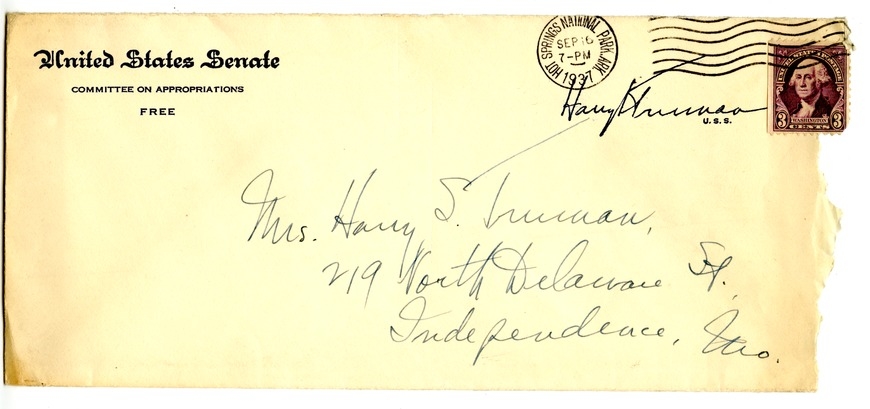 United States Senate
COMMITTEE ON APPROPRIATIONS
FREE
HOT SPRINGS NATIONAL PARK, ARK.
SEP 16
7-PM
1937
Harry S Truman
U.S.S.
UNITED STATES POSTAGE
3 WASHINGTON 3
Mrs. Harry S. Truman,
219 North Delaware St.,
Independence, Mo.